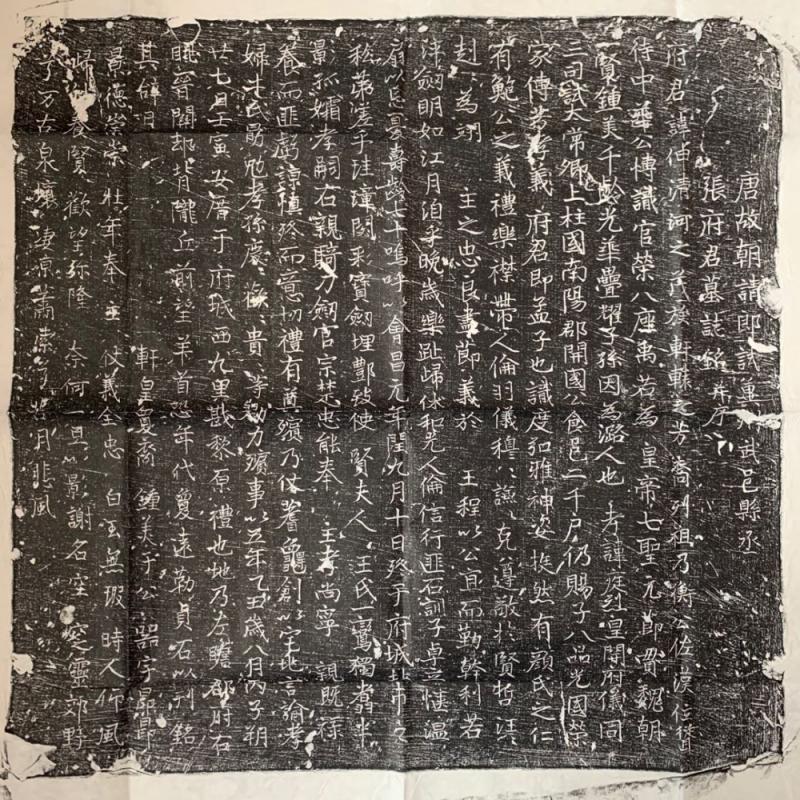 唐故朝請郎試冀州武邑縣丞
張府君墓誌銘并序
府君諱伸清河之茂族軒轅之芳裔列祖乃衡公佐漢位
侍中華公傳識官榮八座禹若為皇帝七聖元節胄魏朝
賢鍾美千齡光華疊耀子孫因為潞人也 考諱庭皇開府儀同
三司試太常卿上柱國南陽郡開國公食邑二千戶仍賜子八品光國榮
家傳芳孝義 府君即孟子也識度弘雅神姿挨然有顏氏之仁
有鮑公之義禮樂襟帶人倫羽儀穆穆謙謙克尊敬於賢哲
赳赳為翊 主之忠良盡節義於 王程以公直而勤幹利若
淬劒明如江月洎乎晚歲樂趾歸休和光人倫信行匪石訓子卓立溫
扇以忘憂壽齡七十嗚呼以會昌元年閏九月十日終于府城北市之
私第 手潼關彩寶劒埋酆致使 賢夫人 王氏一鸞獨翥半
景孤孀孝嗣右親騎力劒官宗楚忠能奉 主孝尚寧 親既祿
養而匪虧諒禎終而意切禮有奠殯乃仗蓍龜創以宅地言諭孝
婦士氏勗勉孝孫慶慶 貴貴等勠力殯事以五年乙丑歲八月丙子朔
廿七日壬寅安厝于府城西九里戡黎原禮也地乃左瞻郡府右
眺 關 背隴丘前望羊首恐年代敻遠勒貞石以刊銘
其辭曰 軒皇夐裔 鍾美于公 器宇昂昂
景德崇崇 壯年奉主 仗義全忠 白玉無瑕 時人仰風
歸 養賢 歡望弥隆 奈何一旦以影謝名空 靈郊野
兮万古泉壤淒凉蕭索兮 月悲風